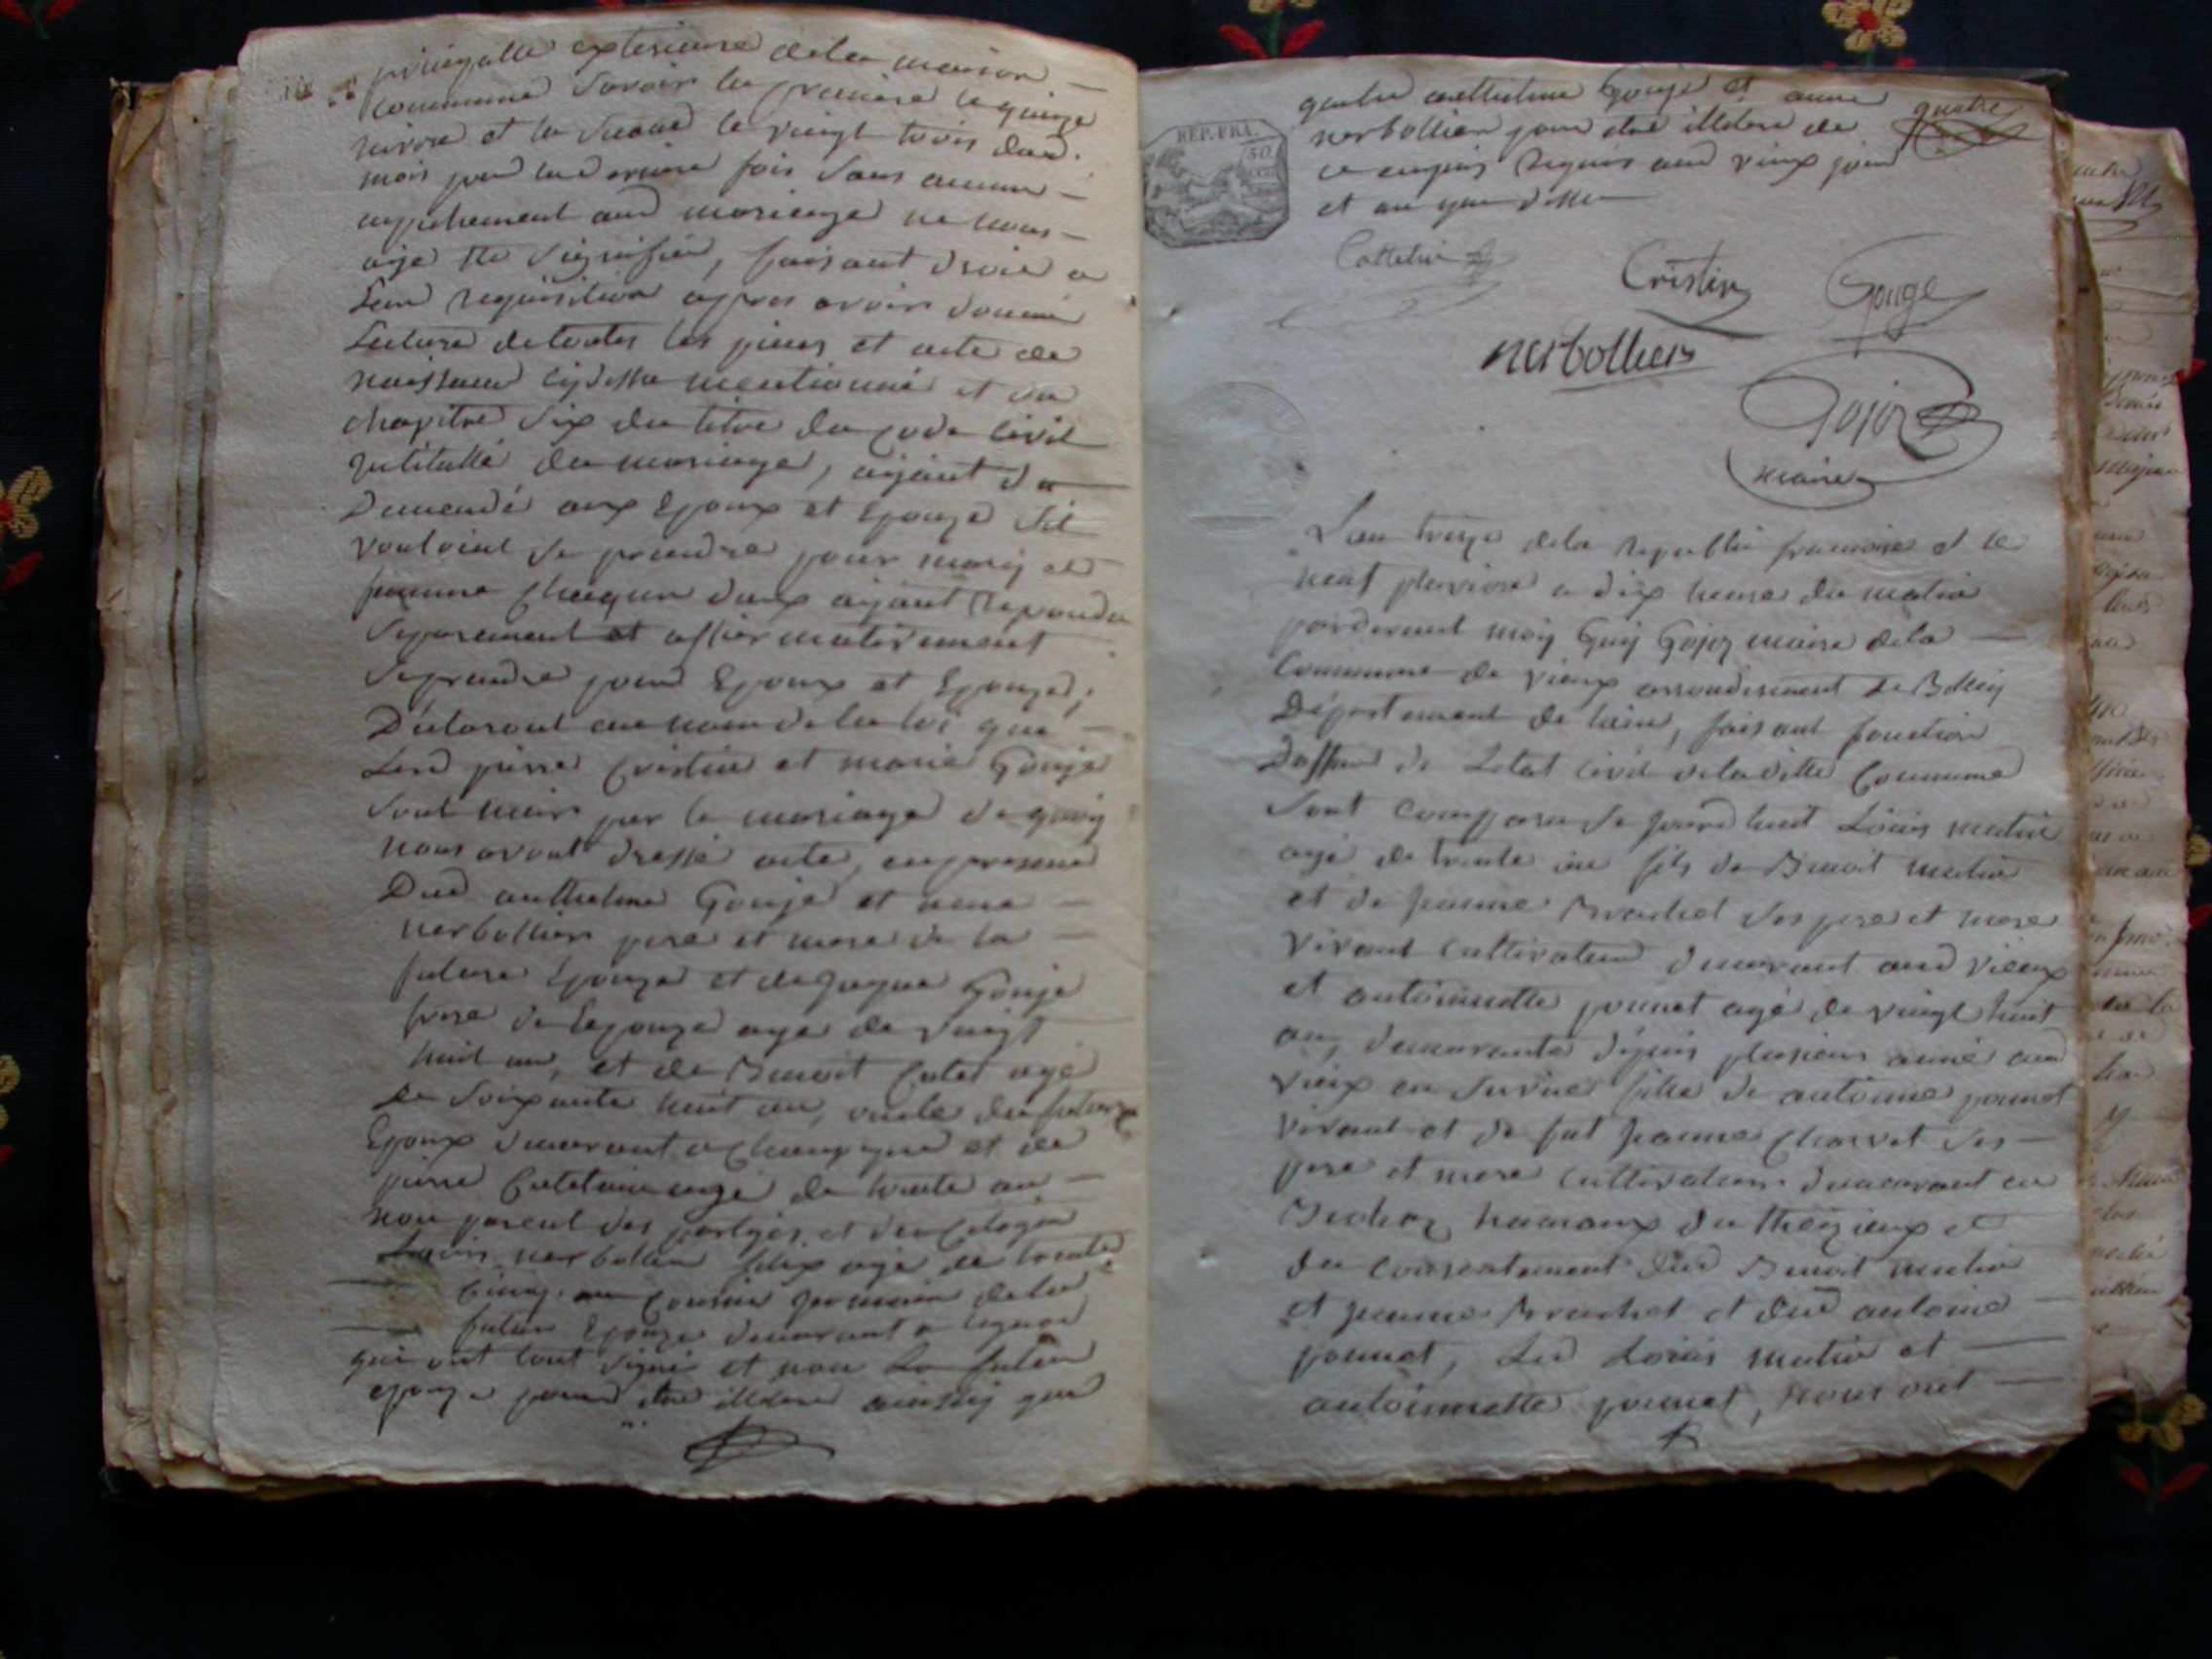 principalle exterieure dela maison
commune savoir la premiere le quinze
nivose et la seconde le vingt trois dud.
mois pour la derniere fois sans aucune
empechement aud mariage ne nous
aye ete signifier, faisant droit a
leur requisition appres avoir donné
Lecture detoutes les pieces et acte de
naissance cy dessu mentionné et du
chapitre six du titre du code civil
intitullé du mariage, ayant
Demandé aux Epoux et Epouze sil
vouloint se prendre pour mary et
femme chaqun deux ayant repondu
separement et affiermativement
se prendre pour Epoux et Epouze,
Déclaront au nom de la loi que
Led pierre cristin et marie Gouje
sont unis par le mariage de quoy
nous avont dressé acte, en presence
Dud anthelme Gouje et anne
nerbollier pere et mere de la
future Epouze et de Gouje
frere de Lepouze agé de vingt
huit an, et de Benoit agé
de soixante huit an, oncle du futur
Epoux demeurant a champagne et de
pierre agé de trente an
non parent des partyes et du
Louis nerbollier agé de trente
cinq an cousin germain dela
future Epouze demeurant a
qui ont tout signé et non La future
epouze pour etre illetere ainssy que
quatre
REP. FRA.
50
anthelme Gouje et anne
nerbollier pour etre illetere de
ce enquis requis aud vieux jour
et an que dessu
Cattelin
Cristin Gouge
nerbolliers
Gojoz
maire
L'an treize dela republic francoise et le
neuf pluviose a dix heures du matin
pardevant moy Guy Gojoz maire dela
Commune de vieux arrondisement de Belley
Département de lain, faisant fonction
de Letat civil deladitte Commune
sont comparu de jourd huit Louis
agé de trente an fils de Benoit
et de jeanne Brachet ses pere et mere
vivant cultivateur demeurant aud vieux
et antoinnette ponnet agé de vingt huit
an, demeurante depuis plusieur anné aud
vieux en service fille de antoinne ponnet
vivant et de fut jeanne charvet ses
pere et mere cultivateur demeurant en
hameaux du thezieux et
du consentement dud Benoit
et jeanne Brachet et dud antoine
ponnet, Led Louis et
antoinnette ponnet, nous ont